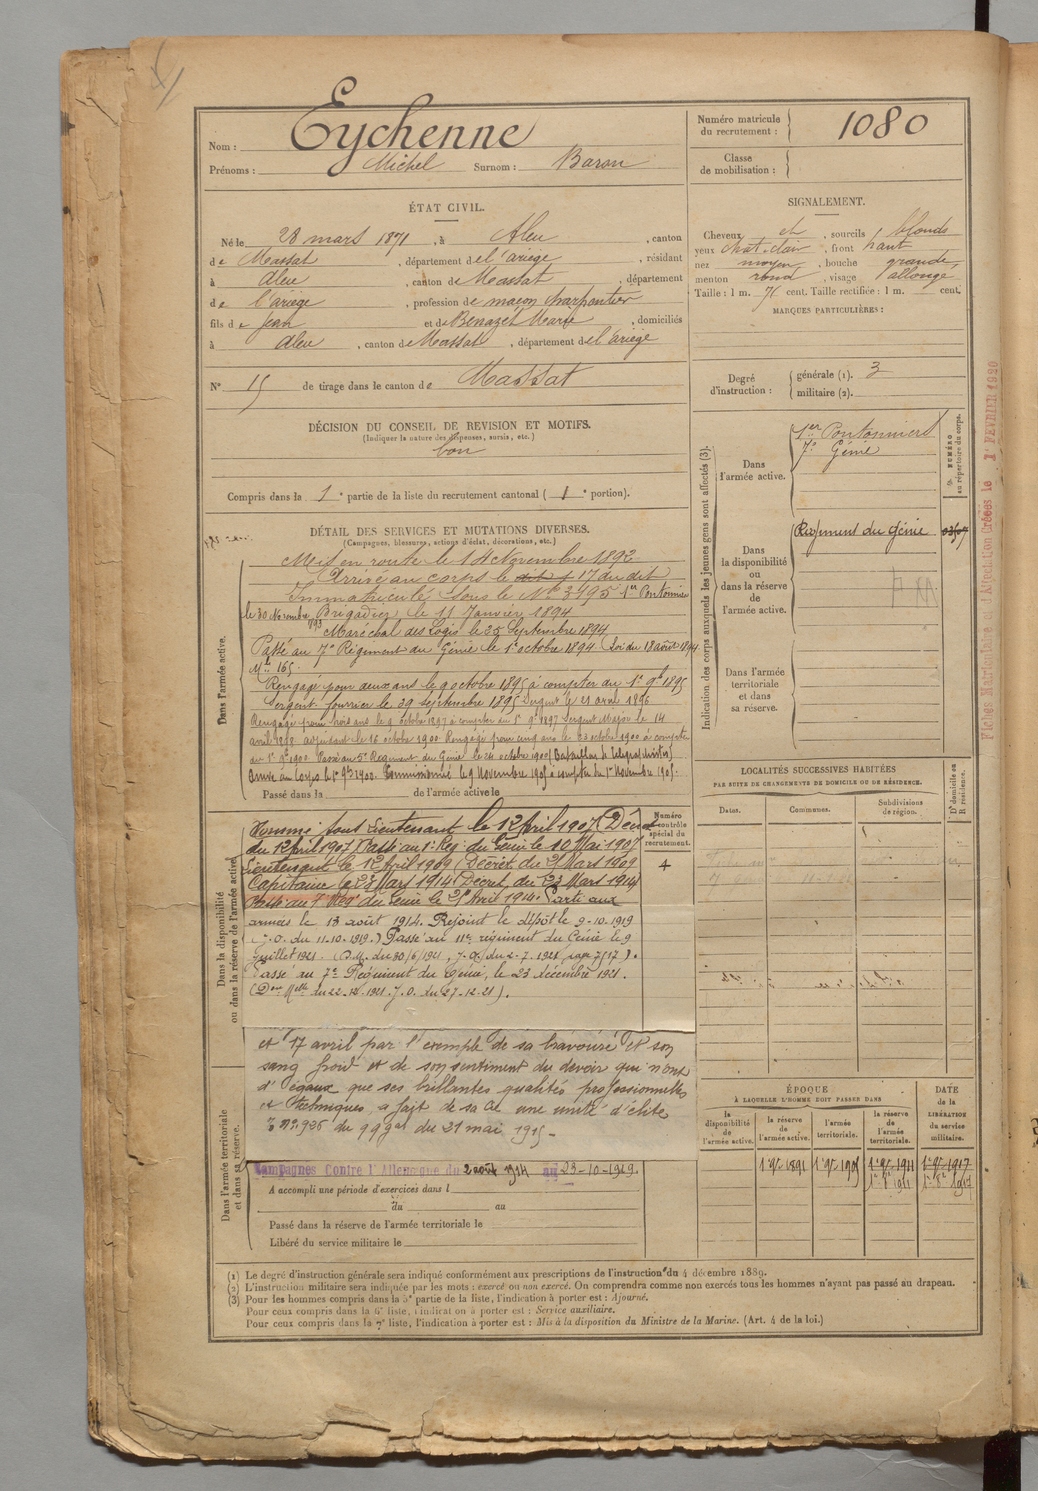 Nom : Eychenne
Prénoms : Michel Surnom : Baron
Numéro matricule du recrutement : 1080
Classe de mobilisation :
ÉTAT CIVIL.
Né le 28 mars 1871, à Aleu, canton
de Massat, département de l'ariège, résidant
à Aleu, canton de Massat, département
de l'ariège, profession de maçon charpentier
fils de Jean et de Benazet Marie, domiciliés
à Aleu, canton de Massat, département de l'ariège
N° 15 de tirage dans le canton de Massat
SIGNALEMENT.
Cheveux ch, sourcils blonds
yeux chat. clair, front haut
nez moyen, bouche grande
menton rond, visage allongé
Taille : 1 m. 71 cent. Taille rectifiée : 1 m. cent.
MARQUES PARTICULIÈRES :
Degré d'instruction : générale (1). 3
militaire (2).
DÉCISION DU CONSEIL DE REVISION ET MOTIFS.
(Indiquer la nature des dispenses, sursis, etc.)
bon
Compris dans la 1e partie de la liste du recrutement cantonal (1e portion).
DÉTAIL DES SERVICES ET MUTATIONS DIVERSES.
(Campagnes, blessures, actions d'éclat, décorations, etc.)
Dans l'armée active.
Mis en route le 14 Novembre 1892
Arrivé au corps le 17 du dit
Immatriculé sous le No 3195 1er Pontonnier
le 30 Novembre 1893 Brigadier le 11 Janvier 1894
Maréchal des Logis le 25 Septembre 1894
Passé au 7e Régiment du Génie le 1er octobre 1894 Loi du 18 août 1894
Mle 165.
Rengagé pour deux ans le 9 octobre 1895 à compter du 1er 9bre 1895
Sergent fourrier le 29 septembre 1895 Sergent le 21 avril 1896
Rengagé pour trois ans le 9 octobre 1897 à compter du 1er 9bre 1897 Sergent Major le 14
avril 1898 adjudant le 16 octobre 1900 Rengagé pour cinq ans le 23 octobre 1900 à compter
du 1er 9bre 1900 Passé au 5e Régiment du Génie le 26 octobre 1900 (Bataillon de Télégraphistes)
Arrivé au Corps le 1er 9bre 1900. Commissionné le 9 Novembre 1905 à compter du 1er Novembre 1905.
Passé dans la de l'armée active le
Dans la disponibilité ou dans la réserve de l'armée active.
Nommé sous Lieutenant le 1er Avril 1907 (Décret
du 1er Avril 1907) Passé au 1er Reg. du Génie le 10 Mai 1907
Lieutenant le 1er Avril 1909 (Décret du 21 Mars 1909
Capitaine le 23 Mars 1914 (Décret du 23 Mars 1914)
Passé au Reg. du Génie le Avril 1914. Parti aux
armées le 13 août 1914. Rejoint le dépôt le 9-10-1919
(J.O. du 11-10-1919.) Passé au 11e régiment du Génie le 9
juillet 1921 (D.M. du 30/6/1921, J.O. du 2-7-1921 page 7517).
Passé au 7e Régiment du Génie, le 23 décembre 1921.
(Don Melle du 22-12-1921. J.O. du 27-12-21).
et 17 avril par l'exemple de sa bravoure et son
sang froid et de son sentiment du devoir qui n'ont
d'égaux que ses brillantes qualités professionnelles
et techniques, a fait de sa Cie une unité d'élite
o/ No 926 du gqgal du 21 mai 1915-
Dans l'armée territoriale et dans sa réserve.
Campagnes Contre l'Allemagne du 2 août 1914 au 23-10-1919.
A accompli une période d'exercices dans l
du au
Passé dans la réserve de l'armée territoriale le
Libéré du service militaire le
Numéro au contrôle spécial du recrutement.
4
Indication des corps auxquels les jeunes gens sont affectés (3).
NUMÉRO au répertoire du corps.
Dans l'armée active.
1er Pontonniers
7e Génie
Dans la disponibilité ou dans la réserve de l'armée active.
Régiment du Génie
Dans l'armée territoriale et dans sa réserve.
LOCALITÉS SUCCESSIVES HABITÉES
PAR SUITE DE CHANGEMENTS DE DOMICILE OU DE RÉSIDENCE.
Dates.
Communes.
Subdivisions de région.
D domicile ou R résidence.
ÉPOQUE
À LAQUELLE L'HOMME DOIT PASSER DANS
la disponibilité de l'armée active.
la réserve de l'armée active.
l'armée territoriale.
la réserve de l'armée territoriale.
DATE de la LIBÉRATION du service militaire.
1er 9bre 1891 1er 9bre 1905 1er 9bre 1911 1er 9bre 1917
Fiches Matriculaire et d'Affectation Créées le 1er FÉVRIER 1920
(1) Le degré d'instruction générale sera indiqué conformément aux prescriptions de l'instruction du 4 décembre 1889.
(2) L'instruction militaire sera indiquée par les mots : exercé ou non exercé. On comprendra comme non exercés tous les hommes n'ayant pas passé au drapeau.
(3) Pour les hommes compris dans la 5e partie de la liste, l'indication à porter est : Ajourné.
Pour ceux compris dans la 6e liste, l'indication à porter est : Service auxiliaire.
Pour ceux compris dans la 7e liste, l'indication à porter est : Mis à la disposition du Ministre de la Marine. (Art. 4 de la loi.)